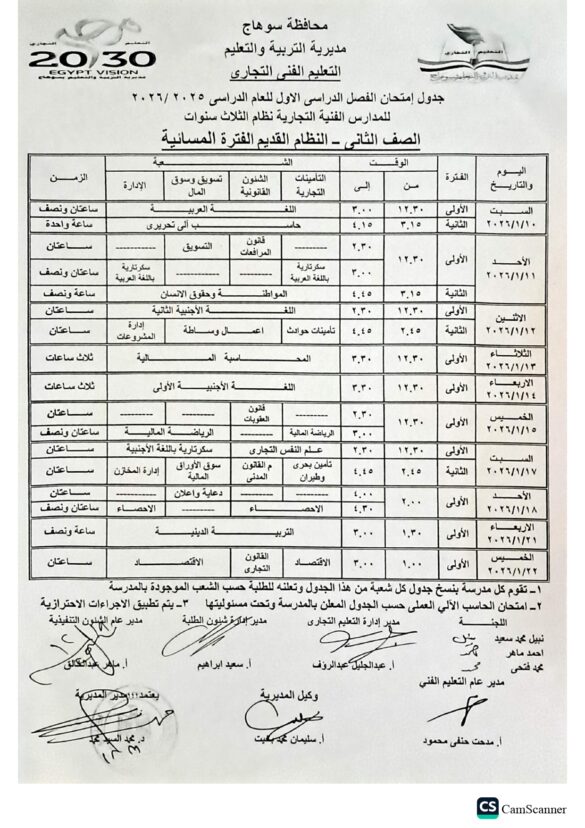 محافظة سوهاج
مديرية التربية والتعليم
التعليم الفنى التجارى
التعليم التجارى
20/30
EGYPT VISION
مديرية التربية والتعليم بسوهاج
جدول إمتحان الفصل الدراسى الاول للعام الدراسى ٢٠٢٦/٢٠٢٥
للمدارس الفنية التجارية نظام الثلاث سنوات
الصف الثانى – النظام القديم الفترة المسائية
اليوم والتاريخ الفترة الوقت الشعبة الزمن
من إلى التأمينات التجارية الشئون القانونية تسويق وسوق المال الإدارة
السبت ٢٠٢٦/١/١٠ الأولى ١٢.٣٠ ٣.٠٠ اللغة العربية ساعتان ونصف
الثانية ٣.١٥ ٤.١٥ حاسب آلى تحريرى ساعة واحدة
الأحد ٢٠٢٦/١/١١ الأولى ١٢.٣٠ ٢.٣٠ ---------- قانون المرافعات التسويق ---------- ساعتان
٣.٠٠ سكرتارية باللغة العربية ---------- ---------- سكرتارية باللغة العربية ساعتان ونصف
الثانية ٣.١٥ ٤.٤٥ المواطنة وحقوق الانسان ساعة ونصف
الاثنين ٢٠٢٦/١/١٢ الأولى ١٢.٣٠ ٢.٣٠ اللغة الأجنبية الثانية ساعتان
الثانية ٢.٤٥ ٤.٤٥ تأمينات حوادث اعمال وساطة إدارة المشروعات ساعتان
الثلاثاء ٢٠٢٦/١/١٣ الأولى ١٢.٣٠ ٣.٣٠ المحاسبة المالية ثلاث ساعات
الاربعاء ٢٠٢٦/١/١٤ الأولى ١٢.٣٠ ٣.٣٠ اللغة الأجنبية الأولى ثلاث ساعات
الخميس ٢٠٢٦/١/١٥ الأولى ١٢.٣٠ ٢.٣٠ ---------- قانون العقوبات ---------- ---------- ساعتان
٣.٠٠ الرياضة المالية ---------- الرياضة المالية ساعتان ونصف
السبت ٢٠٢٦/١/١٧ الأولى ١٢.٣٠ ٢.٣٠ علم النفس التجارى سكرتارية باللغة الأجنبية ساعتان
الثانية ٢.٤٥ ٤.٤٥ تأمين بحرى وطيران م القانون المدنى سوق الأوراق المالية إدارة المخازن ساعتان
الأحد ٢٠٢٦/١/١٨ الأولى ٢.٠٠ ٤.٠٠ ---------- ---------- دعاية واعلان ---------- ساعتان
٤.٣٠ الاحصاء ---------- الاحصاء ساعتان ونصف
الاربعاء ٢٠٢٦/١/٢١ الأولى ١.٣٠ ٣.٠٠ التربية الدينية ساعة ونصف
الخميس ٢٠٢٦/١/٢٢ الأولى ١.٠٠ ٣.٠٠ الاقتصاد القانون التجارى الاقتصاد ساعتان
١ – تقوم كل مدرسة بنسخ جدول كل شعبة من هذا الجدول وتعلنه للطلبة حسب الشعب الموجودة بالمدرسة
٢ – امتحان الحاسب الآلي العملى حسب الجدول المعلن بالمدرسة وتحت مسئوليتها ٣ – يتم تطبيق الاجراءات الاحترازية
اللجنة مدير إدارة التعليم التجارى مدير إدارة شئون الطلبة مدير عام الشئون التنفيذية
نبيل محمد سعيد
احمد ماهر
محمد فتحى
أ. عبدالجليل عبدالرؤف أ. سعيد ابراهيم أ. ماهر عبدالخالق
مدير عام التعليم الفني وكيل المديرية يعتمد،،، مدير المديرية
أ. مدحت حنفى محمود أ. سليمان محمد بخيت د. محمد السيد محمد
CS CamScanner